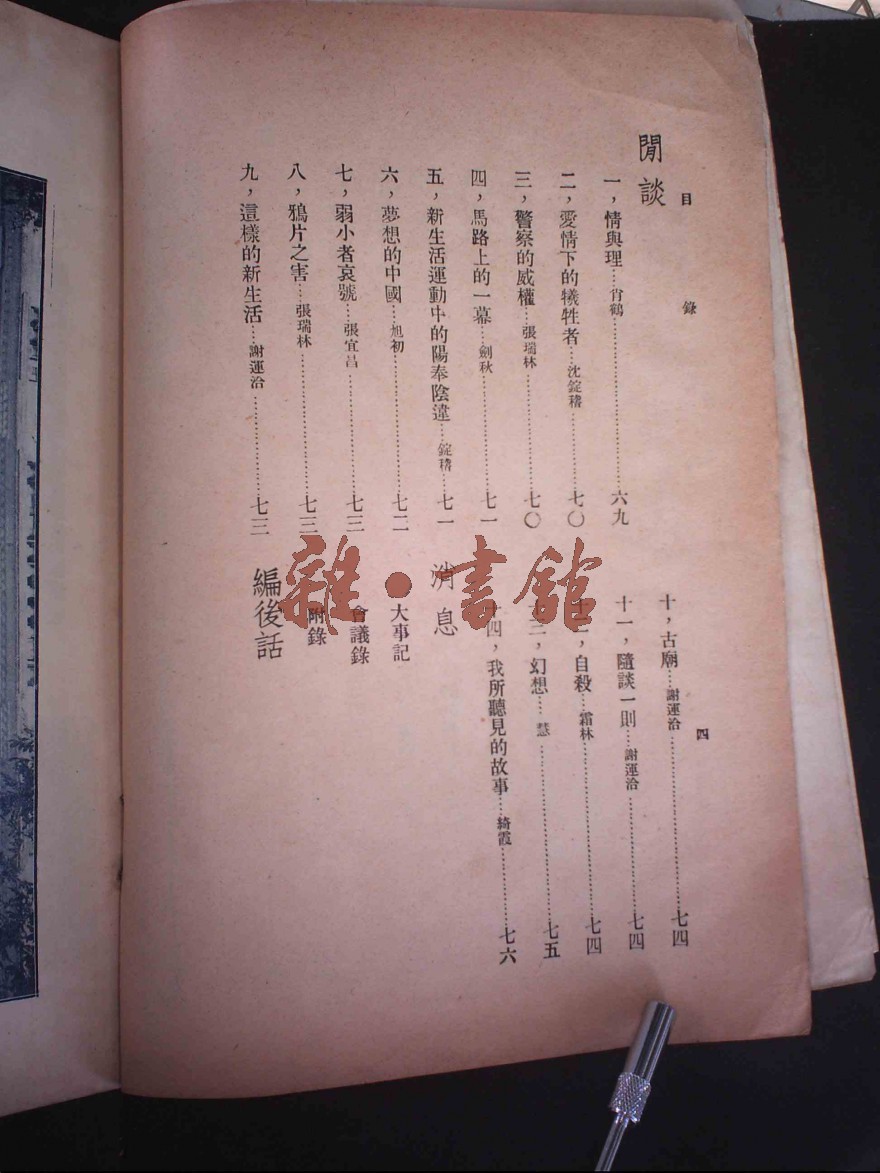 目錄
四
閒談
一，情與理……肖鶴……六九
二，愛情下的犧牲者……沈錠稽……七〇
三，警察的威權……張瑞林……七〇
四，馬路上的一幕……劍秋……七一
五，新生活運動中的陽奉陰違……錠稽……七一
六，夢想的中國……旭初……七二
七，弱小者哀號……張宜昌……七三
八，鴉片之害……張瑞林……七三
九，這樣的新生活……謝運洽……七三
十，古廟……謝運洽……七四
十一，隨談一則……謝運洽……七四
十二，自殺……霜林……七四
十三，幻想……慧……七五
十四，我所聽見的故事……綺霞……七六
消息
大事記
會議錄
附錄
編後話
雜·書館